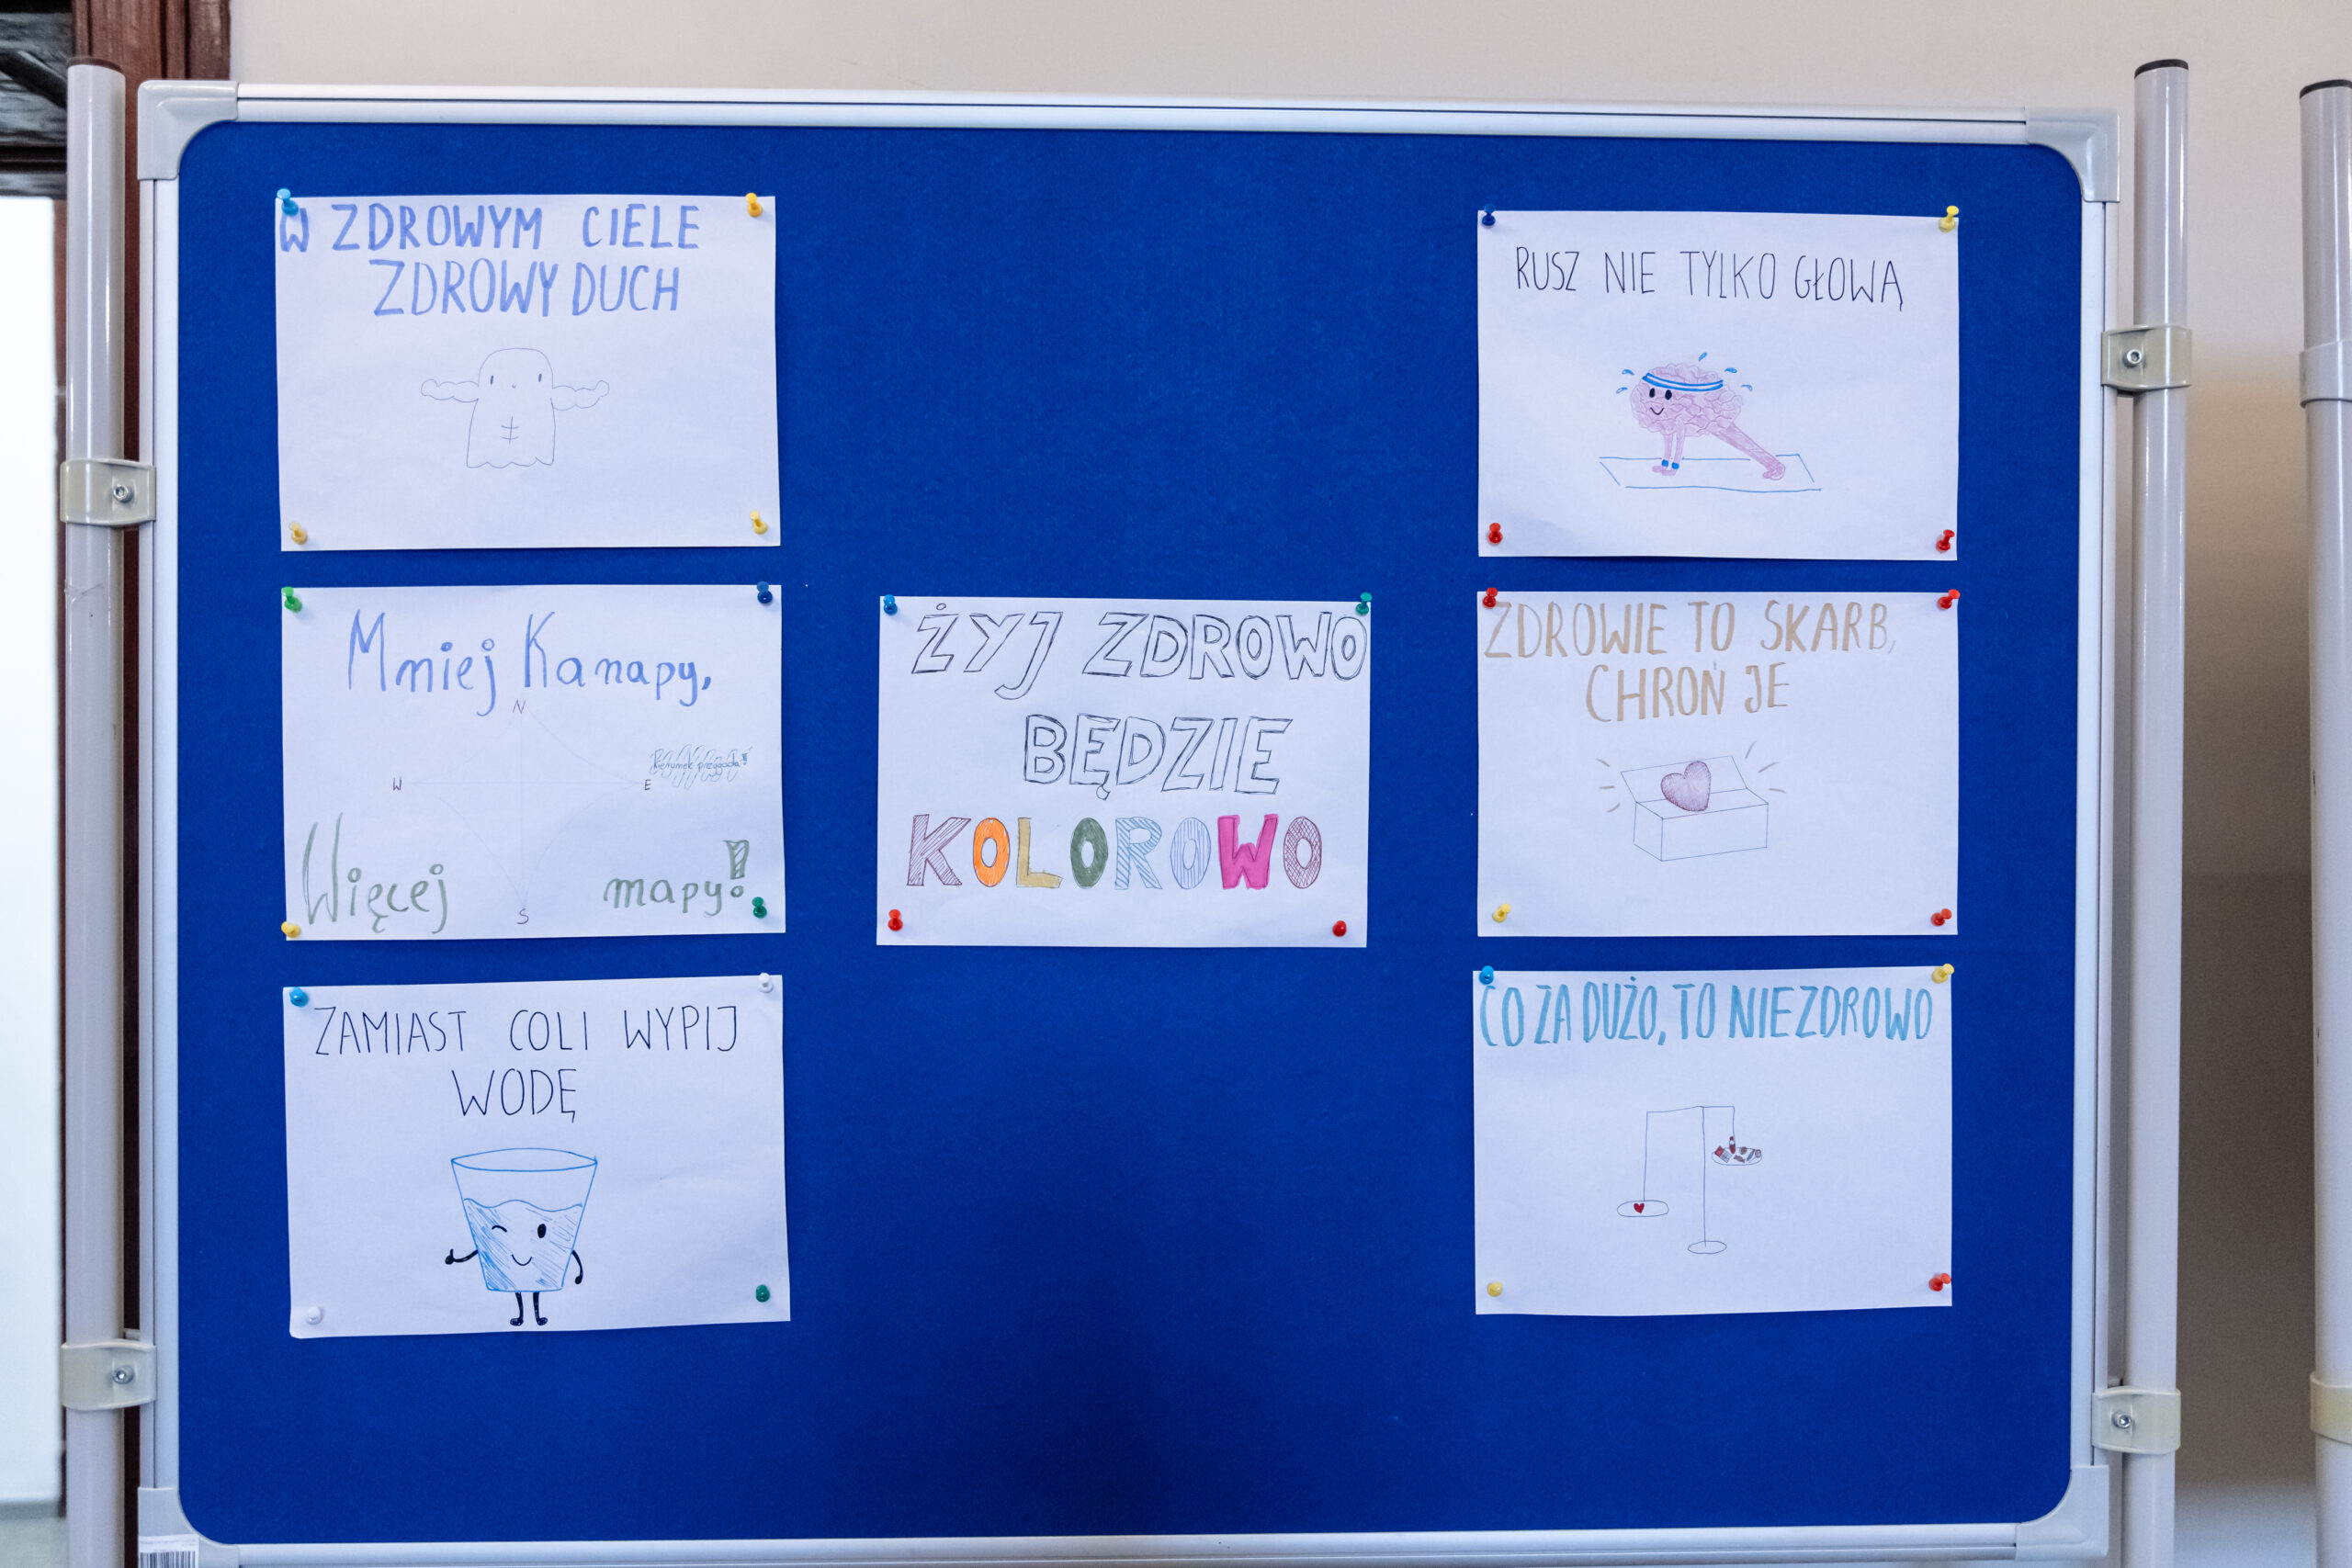 W ZDROWYM CIELE
ZDROWY DUCH
Mniej Kanapy,
N
kierunek przygoda!
W
E
Więcej mapy!
S
ZAMIAST COLI WYPIJ
WODĘ
ŻYJ ZDROWO
BĘDZIE
KOLOROWO
RUSZ NIE TYLKO GŁOWĄ
ZDROWIE TO SKARB,
CHROŃ JE
CO ZA DUŻO, TO NIEZDROWO